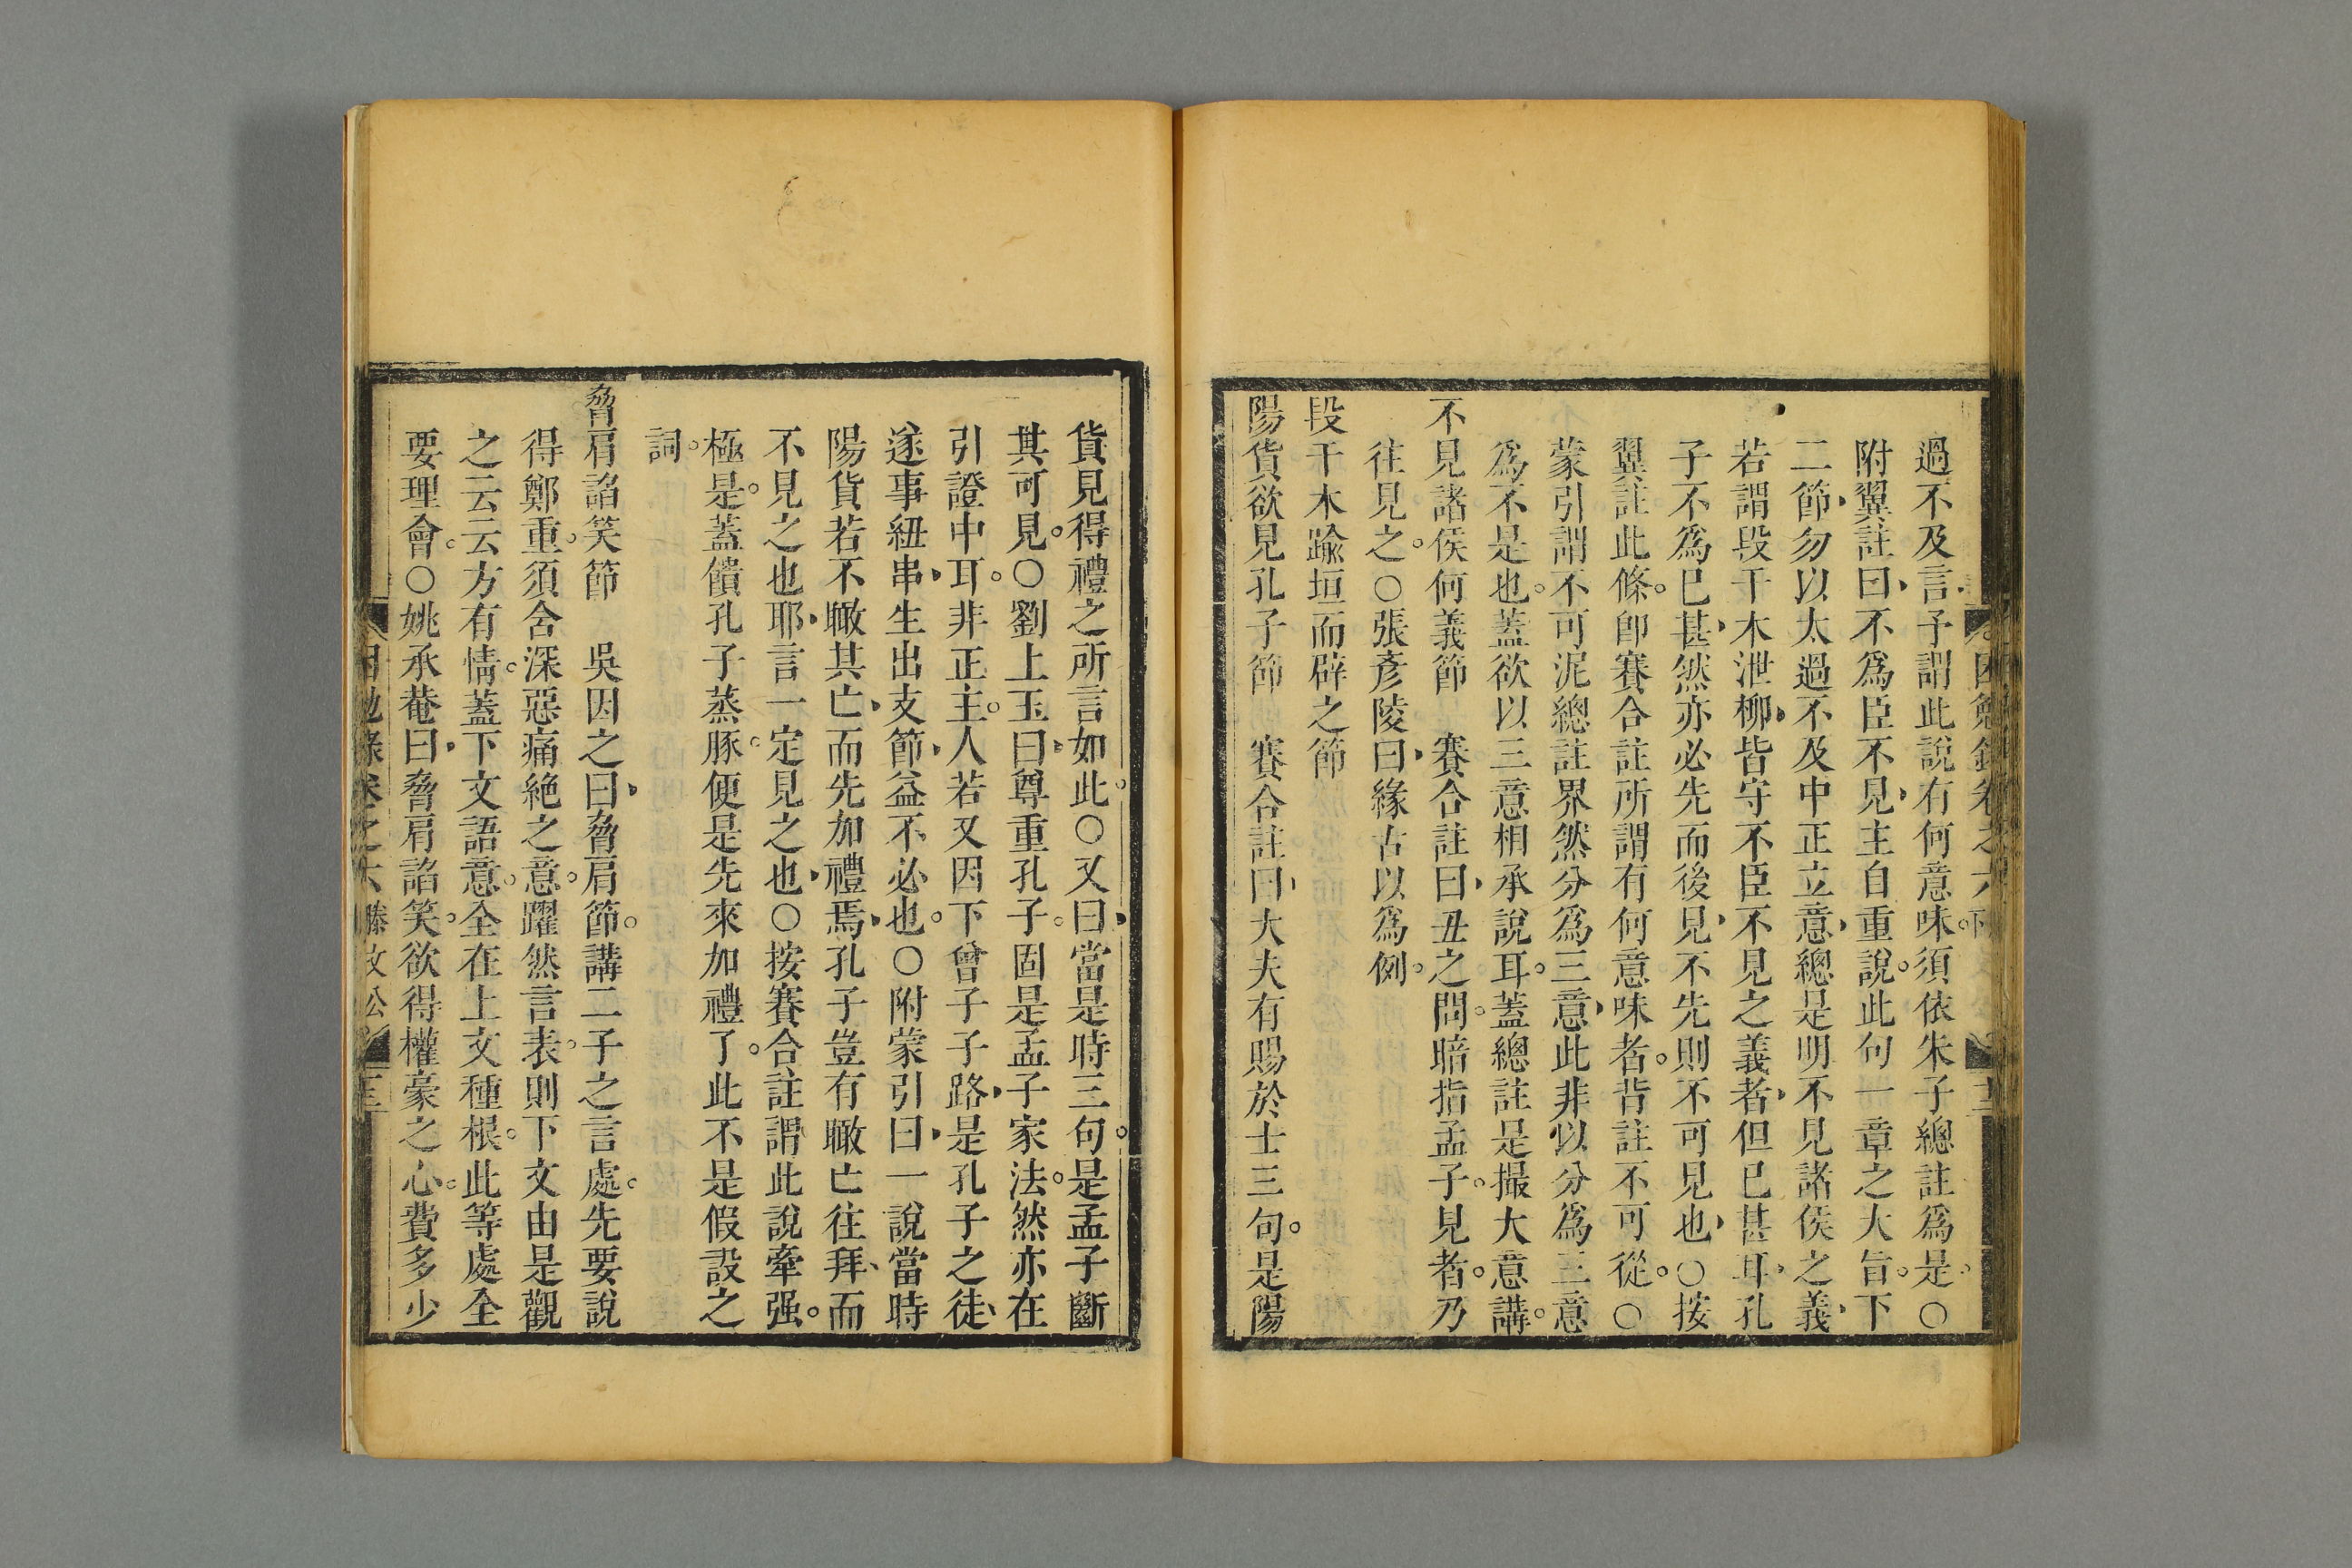 過不及言子謂此說有何意味須依朱子總註為是○
附翼註曰不為臣不見主自重說此句一章之大旨下
二節勿以太過不及中正立意總是明不見諸侯之義
若謂段干木泄柳皆守不臣不見之義者但已甚耳孔
子不為已甚然亦必先而後見不先則不可見也○按
翼註此條卽賽合註所謂有何意味者背註不可從○
蒙引謂不可泥總註界然分為三意此非以分為三意
為不是也蓋欲以三意相承說耳蓋總註是撮大意講
不見諸侯何義節　賽合註曰丑之問暗指孟子見者乃
往見之○張彥陵曰緣古以為例
段干木踰垣而辟之節
陽貨欲見孔子節　賽合註曰大夫有賜於士三句是陽
貨見得禮之所言如此○又曰當是時三句是孟子斷
其可見○劉上玉曰尊重孔子固是孟子家法然亦在
引證中耳非正主人若又因下曾子子路是孔子之徒
遂事紐串生出支節益不必也○附蒙引曰一說當時
陽貨若不瞰其亡而先加禮焉孔子豈有瞰亡往拜而
不見之也耶言一定見之也○按賽合註謂此說牽强
極是蓋饋孔子蒸豚便是先來加禮了此不是假設之
詞
脅肩諂笑節　吳因之曰脅肩節講二子之言處先要說
得鄭重須含深惡痛絕之意躍然言表則下文由是觀
之云云方有情蓋下文語意全在上文種根此等處全
要理會○姚承菴曰脅肩諂笑欲得權豪之心費多少